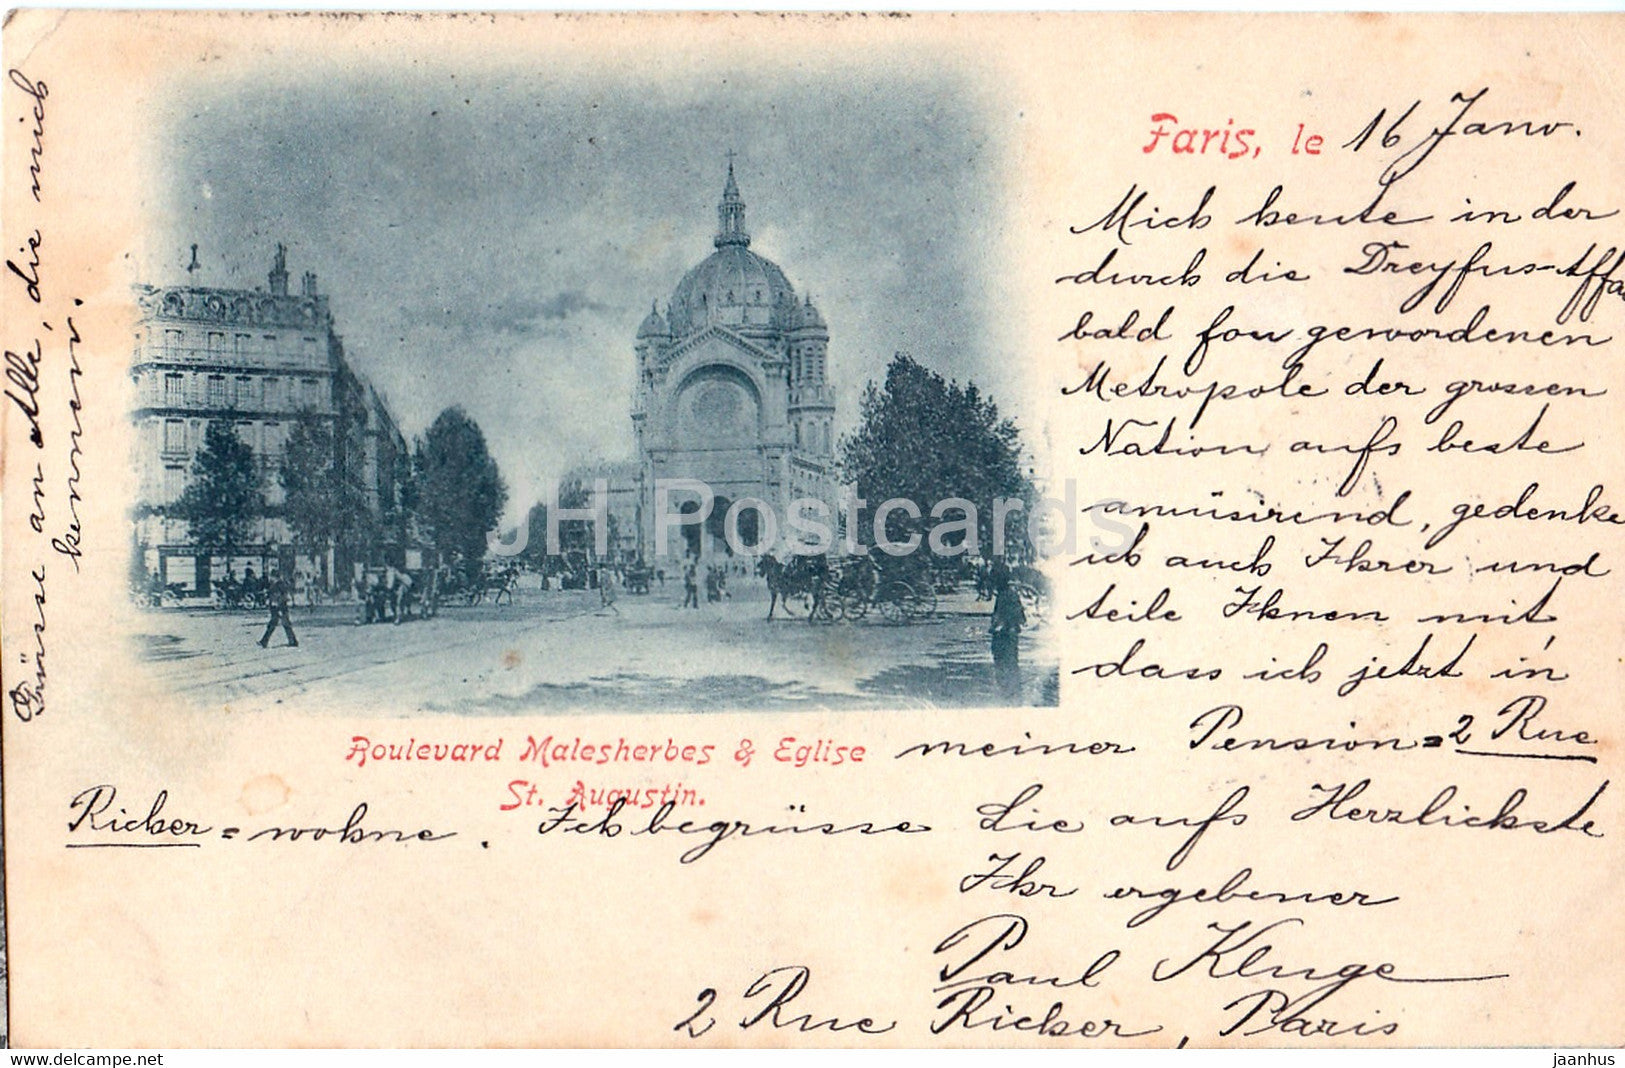 Paris, le 16 Janv.
Mich heute in der
durch die Dreyfus-Affa
bald fou gewordenen
Metropole der grossen
Nation aufs beste
amüsirend, gedenke
ich auch Ihrer und
teile Ihnen mit,
dass ich jetzt in
Boulevard Malesherbes & Eglise
St. Augustin.
meiner Pension = 2 Rue
Richer = wohne. Ich begrüsse Sie aufs Herzlichste
Ihr ergebener
Paul Kluge
2 Rue Richer, Paris
Grüsse an Alle, die mich
kennen.
JH Postcards
delcampe.net
jaanhus